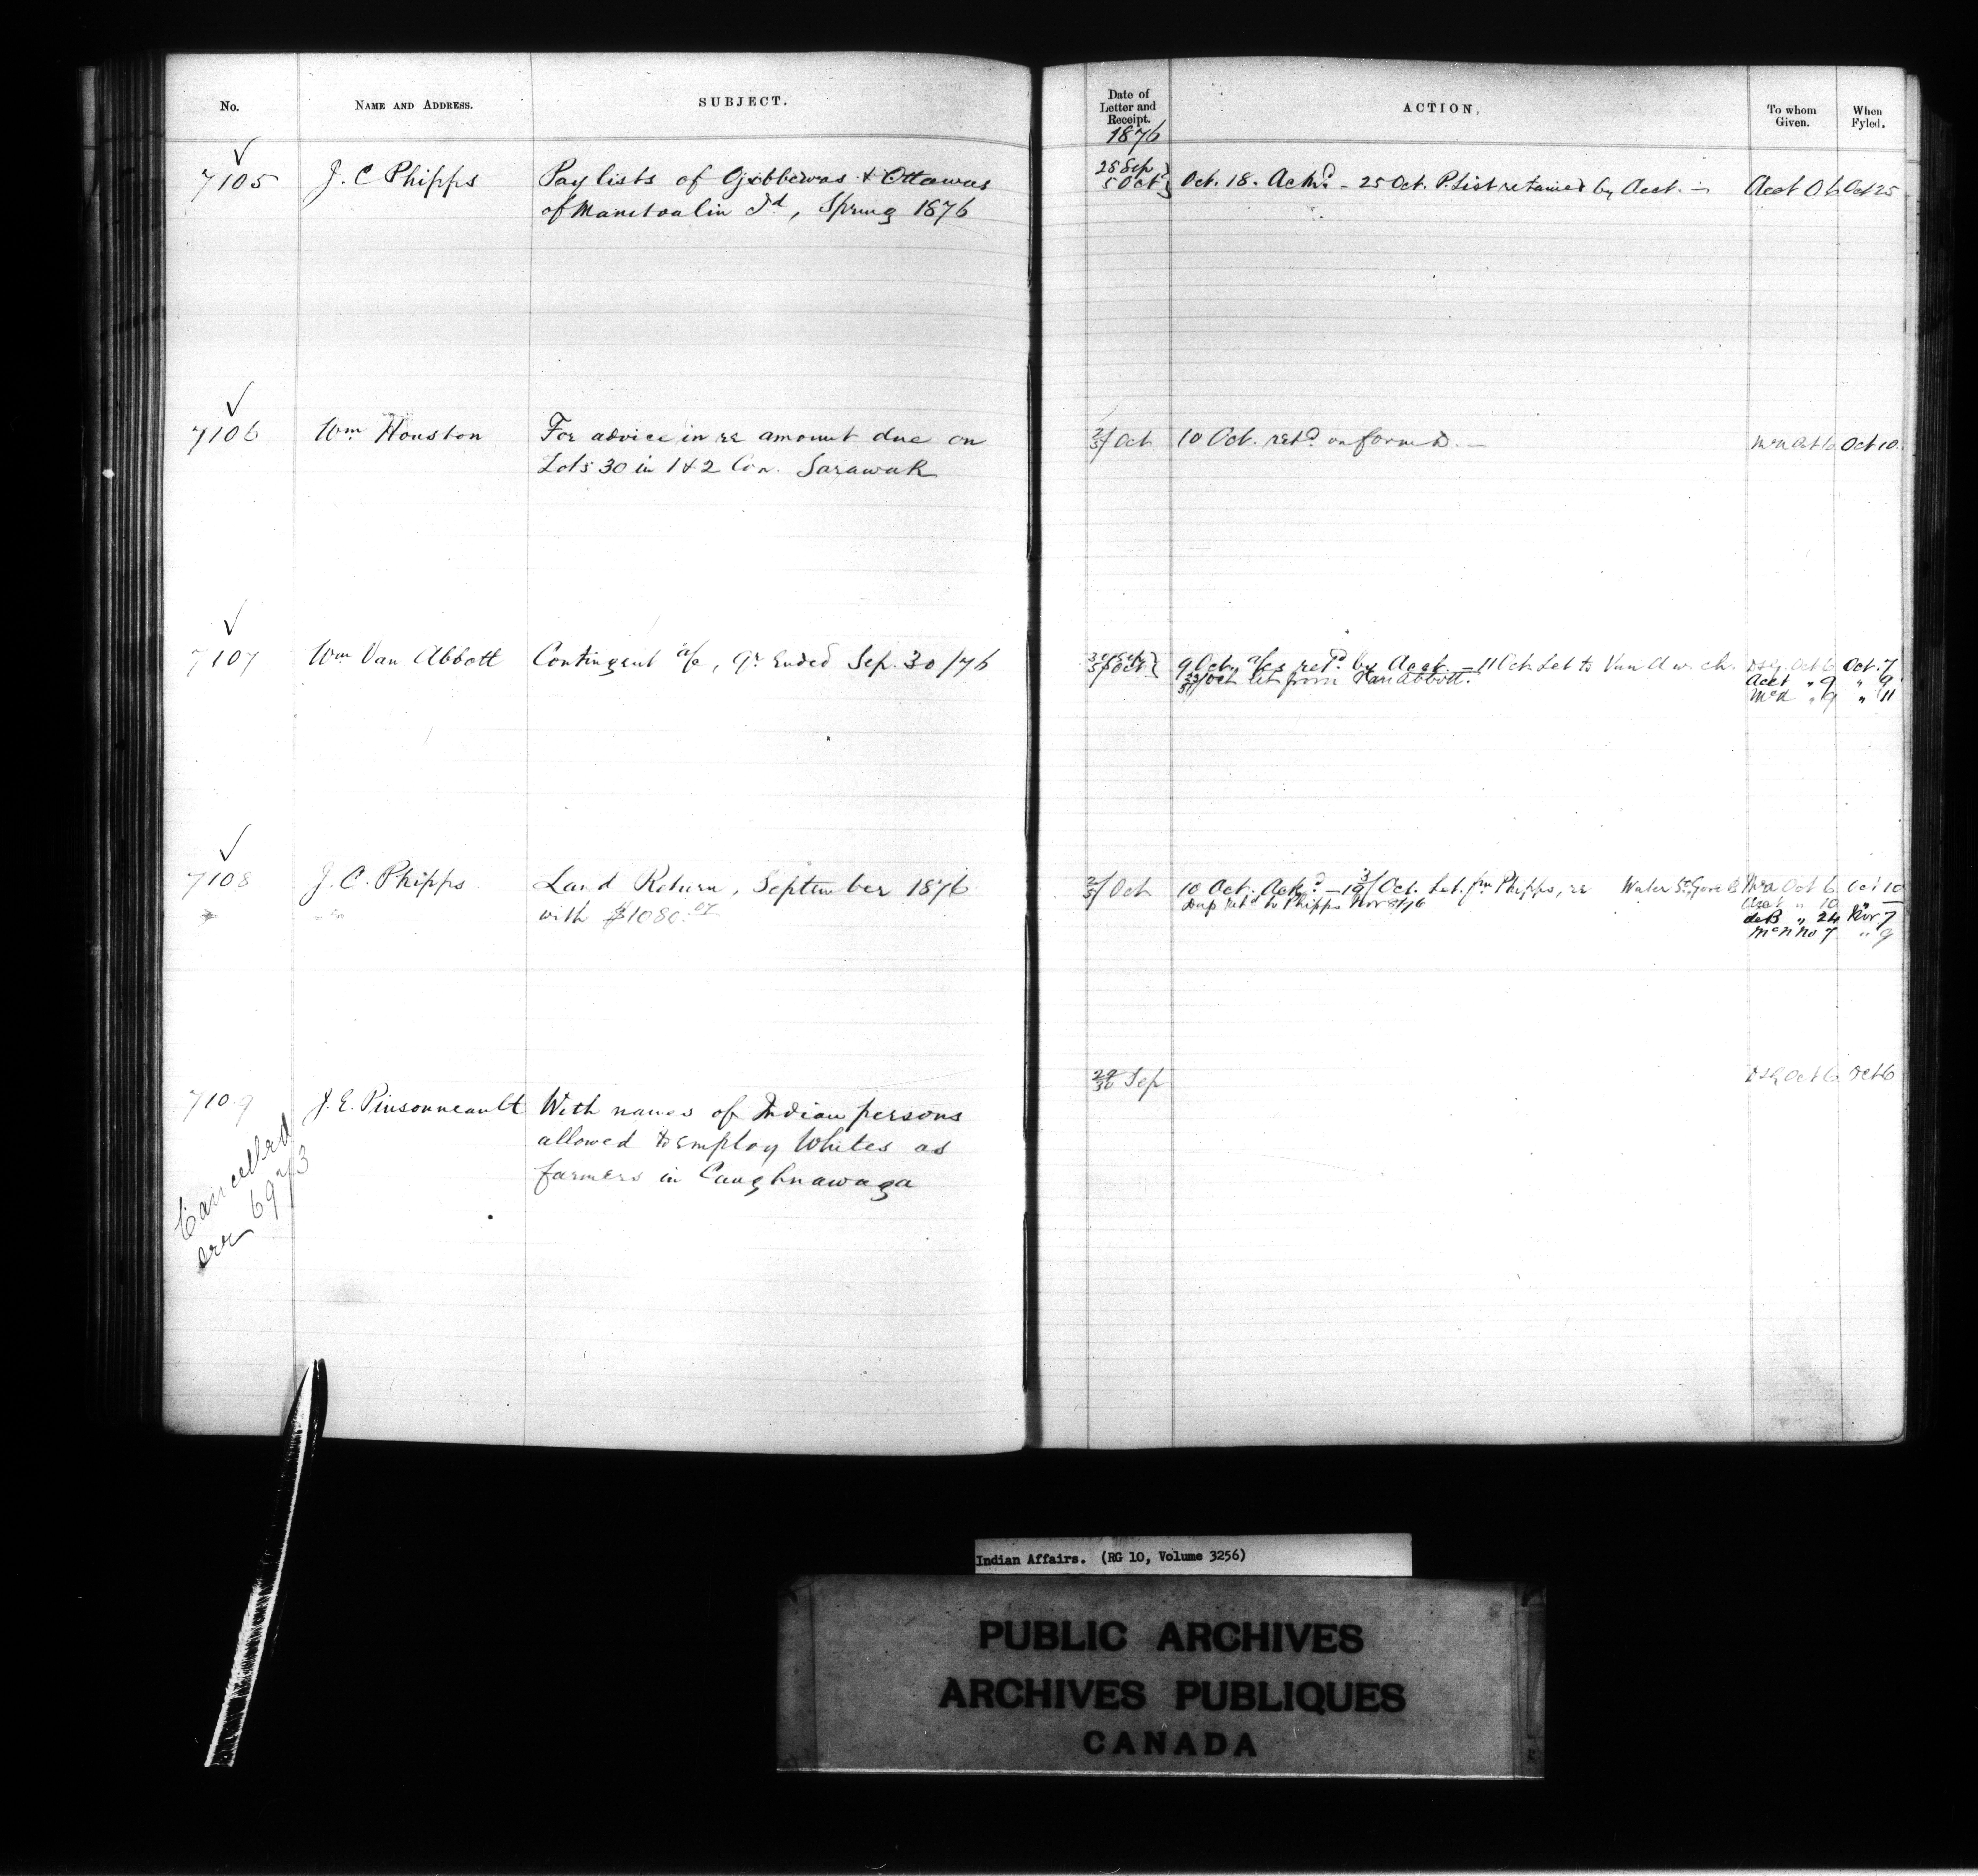 No.
NAME AND ADDRESS.
SUBJECT.
7105
J. C Phipps
Pay lists of Ojibbewas & Ottawas
of Manitoalin Id, Spring 1876
7106
Wm Houston
For advice in re amount due on
Lots 30 in 1 & 2 Con. Sarawak
7107
Wm Van Abbott
Contingent a/c, qr Ended Sep. 30/76
7108
J. C. Phipps
Land Return, September 1876
with $1080.07
7109
J. E. Pinsonneault
With names of Indian persons
allowed to employ Whites as
farmers in Caughnawaga
Cancelled
see 6973
Date of
Letter and
Receipt.
ACTION,
To whom
Given.
When
Fyled.
1876
28 Sep
5 Oct
Oct. 18. Ackd. - 25 Oct. P. List retained by Acct. -
Acct O 6
Oct 25
2/5 Oct
10 Oct. retd on form D. -
McN Oct 6
Oct 10.
30 Sep
5 Oct
9 Oct, a/cs retd by Acct. - 11 Oct. Let to Van A w. ch.
Oct let from Van Abbott.
Oct 6 Oct. 7
Acct " 9 " 9
" 9 " 11
2/5 Oct
10 Oct. Ackd - 19 3/ Oct. Let. fm Phipps, re Water St. Gore B.
Dup retd to Phipps Nov 8/76
Oct 6 Oct 10
Acct " 10 " -
deB " 24 Nov. 7
McN No 7 " 9
29/30 Sep
Oct 6 Oct 6
Indian Affairs. (RG 10, Volume 3256)
PUBLIC ARCHIVES
ARCHIVES PUBLIQUES
CANADA